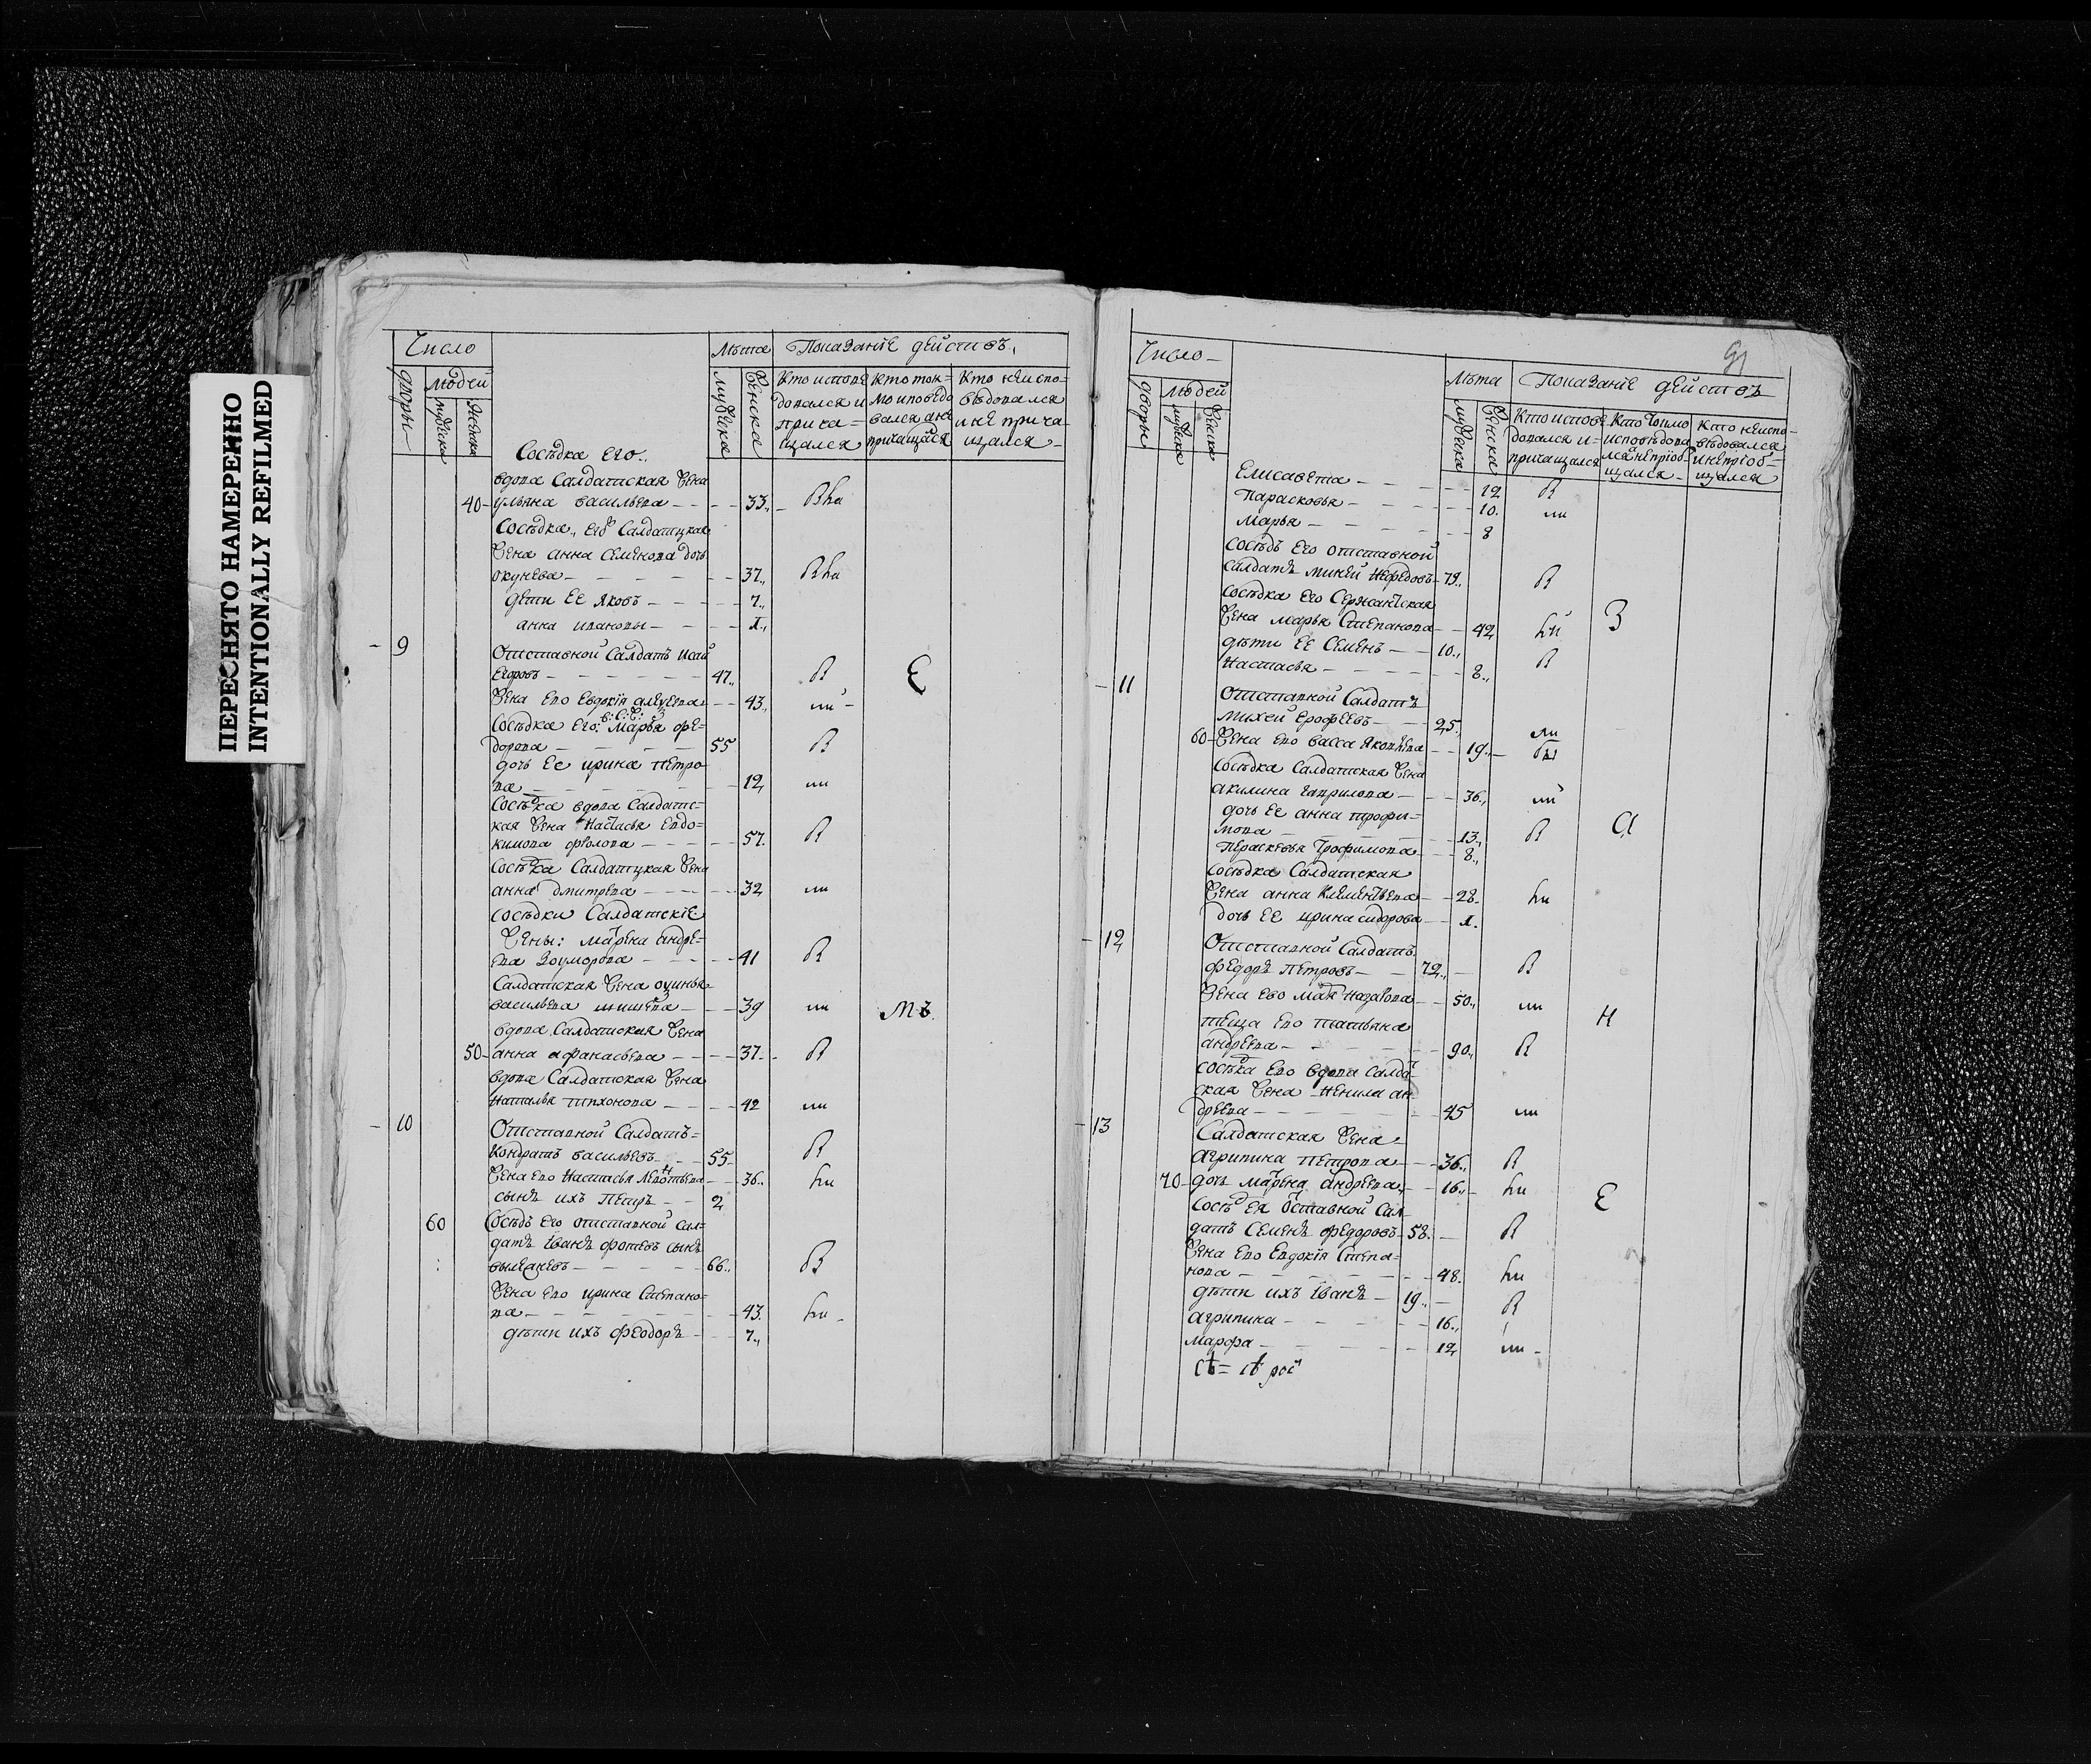 ПЕРЕСНЯТО НАМЕРЕННО
INTENTIONALLY REFILMED
Число
Лѣта Показанїе действъ
дворы людей мужеска женска
мужеска женска
Кто испове
довался и
прича=
щался
Кто ток=
мо исповедо
вался а не
причащался
Кто не испо=
вѣдовался
и не прича
щался
Сосѣдка его
вдова Салдатская жена
40 ульяна васильева 33
Сосѣдка его Салдатцкая
жена анна Семенова дочь
окунева 37
дети ее яковъ 7
анна ивановы 1
9 Отставной Салдатъ исай
Егоровъ 47
жена ево Евдокїя 43
Сосѣдка его Марья фе=
дорова 55
дочь ее ирина петро
ва 12
Сосѣдка вдова Салдатс=
кая жена Настасья Евдо=
кимова фролова 57
Сосѣдка Салдатцкая жена
анна дмитрева 32
сосѣдки Салдатскїе
жены: марѳна андре=
ева 41
Салдатская жена
васильева 39
вдова Салдатская жена
50 анна афанасьева 37
вдова Салдатская жена
Наталья тихонова 42
10 Отставной Салдатъ=
Кондратъ васильевъ 55
жена ево Настасья 36
сынъ ихъ Петръ 2
60 Сосѣдъ его отставной Сал=
датъ Іванъ фотеевъ сынъ
66
жена ево ирина Степано=
ва 43
дѣти ихъ феодоръ 7
Е
мъ
91
Число
дворы людей мужеска женска
Лѣта Показанїе действъ
мужеска женска
Кто испове
довался и=
причащался
Кто токмо
исповѣдова
лся а не прїоб
щался
Кто не испо=
вѣдовался
и не прїоб=
щался
Елисавета 12
Парасковья 10
марья 8
сосѣдъ его отставной
салдатъ миней Нефедовъ 79
сосѣдка его Сержантская
жена марья Степанова 42
дѣти ее Семенъ 10
Настасья 8
11 Отставной Салдатъ
михей ерофеевъ 25
60 жена ево васса яковлева 19
сосѣдка Салдатская жена
акилина гаврилова 36
дочь ее анна трофи=
мова 13
Параскевья Трофимова 8
сосѣдка Салдатская
жена анна климентьева 28
дочь ее ирина сидорова 1
12 Отставной Салдатъ
федоръ петровъ 72
жена его назарова 50
теща ево татьяна
андреева 90
сосѣдка ево вдова салдат
ская жена Ненила ан
дреева 45
13 Салдатская жена
агрипина петрова 36
70 дочь марѳна андреева 16
Сосѣд ея отставной Сал
датъ Семенъ федоровъ 58
жена ево Евдокїя Степа=
нова 48
дѣти ихъ Іванъ 19
агрипина 16
марфа 12
З
а
н
Е